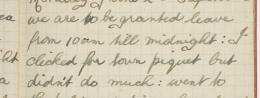 we are to be granted leave
from 10am till midnight: I
clicked for town piquet but
didn't do much: went to